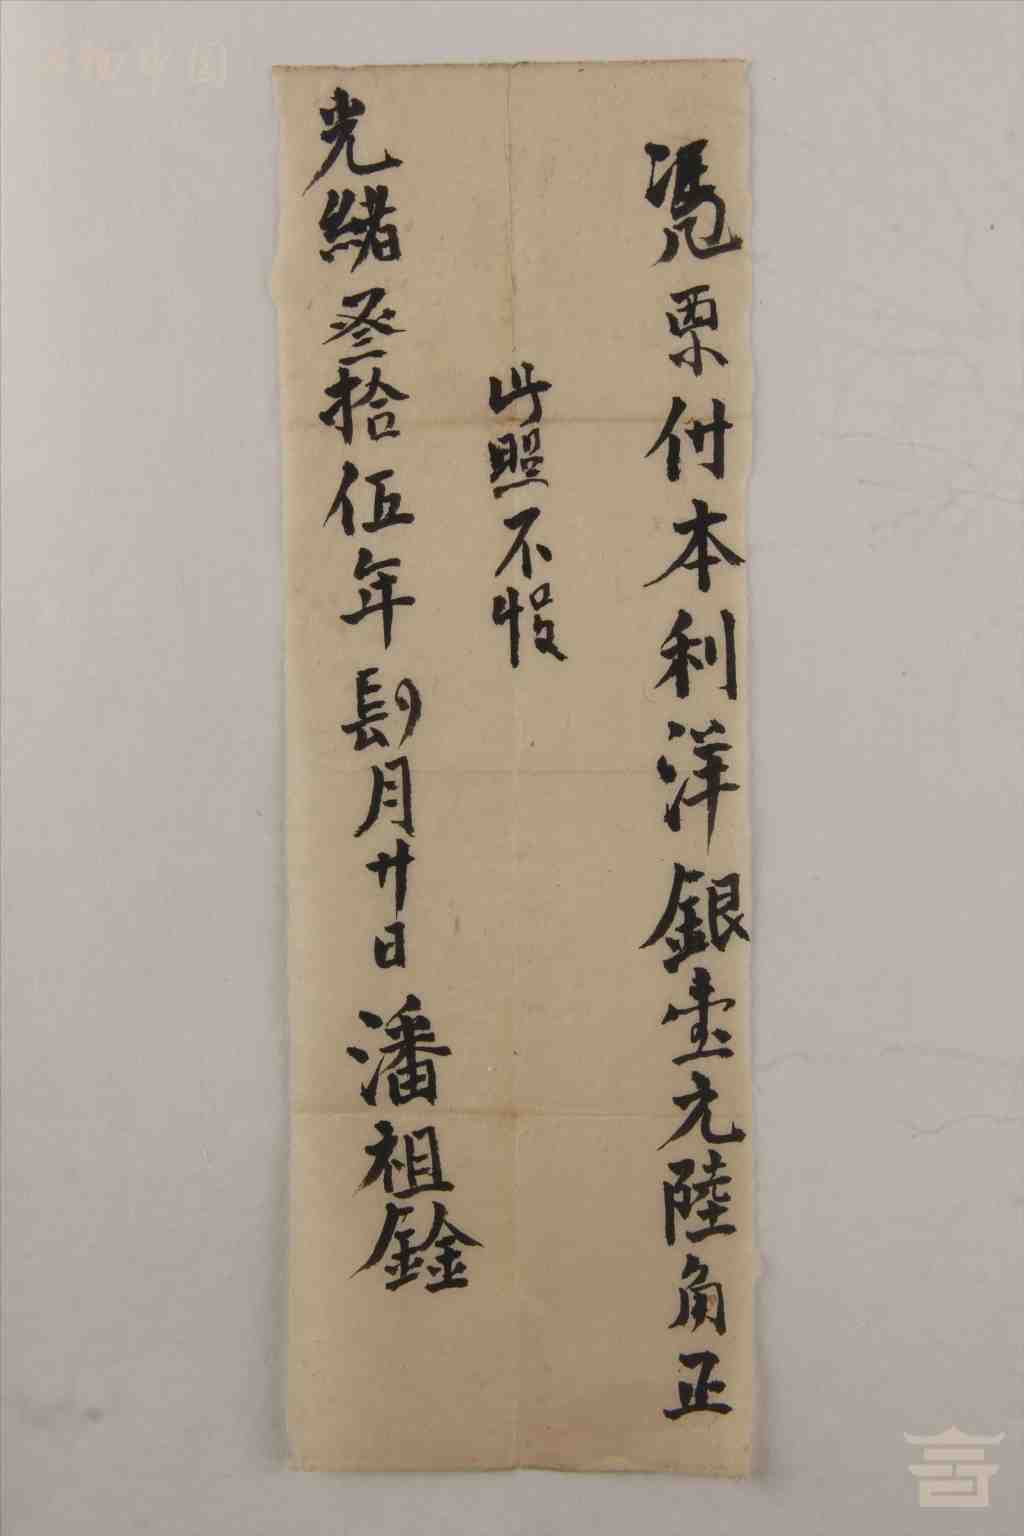 憑票付本利洋銀壹元陸角正
此照不悞
光緒叁拾伍年 月廿日潘祖